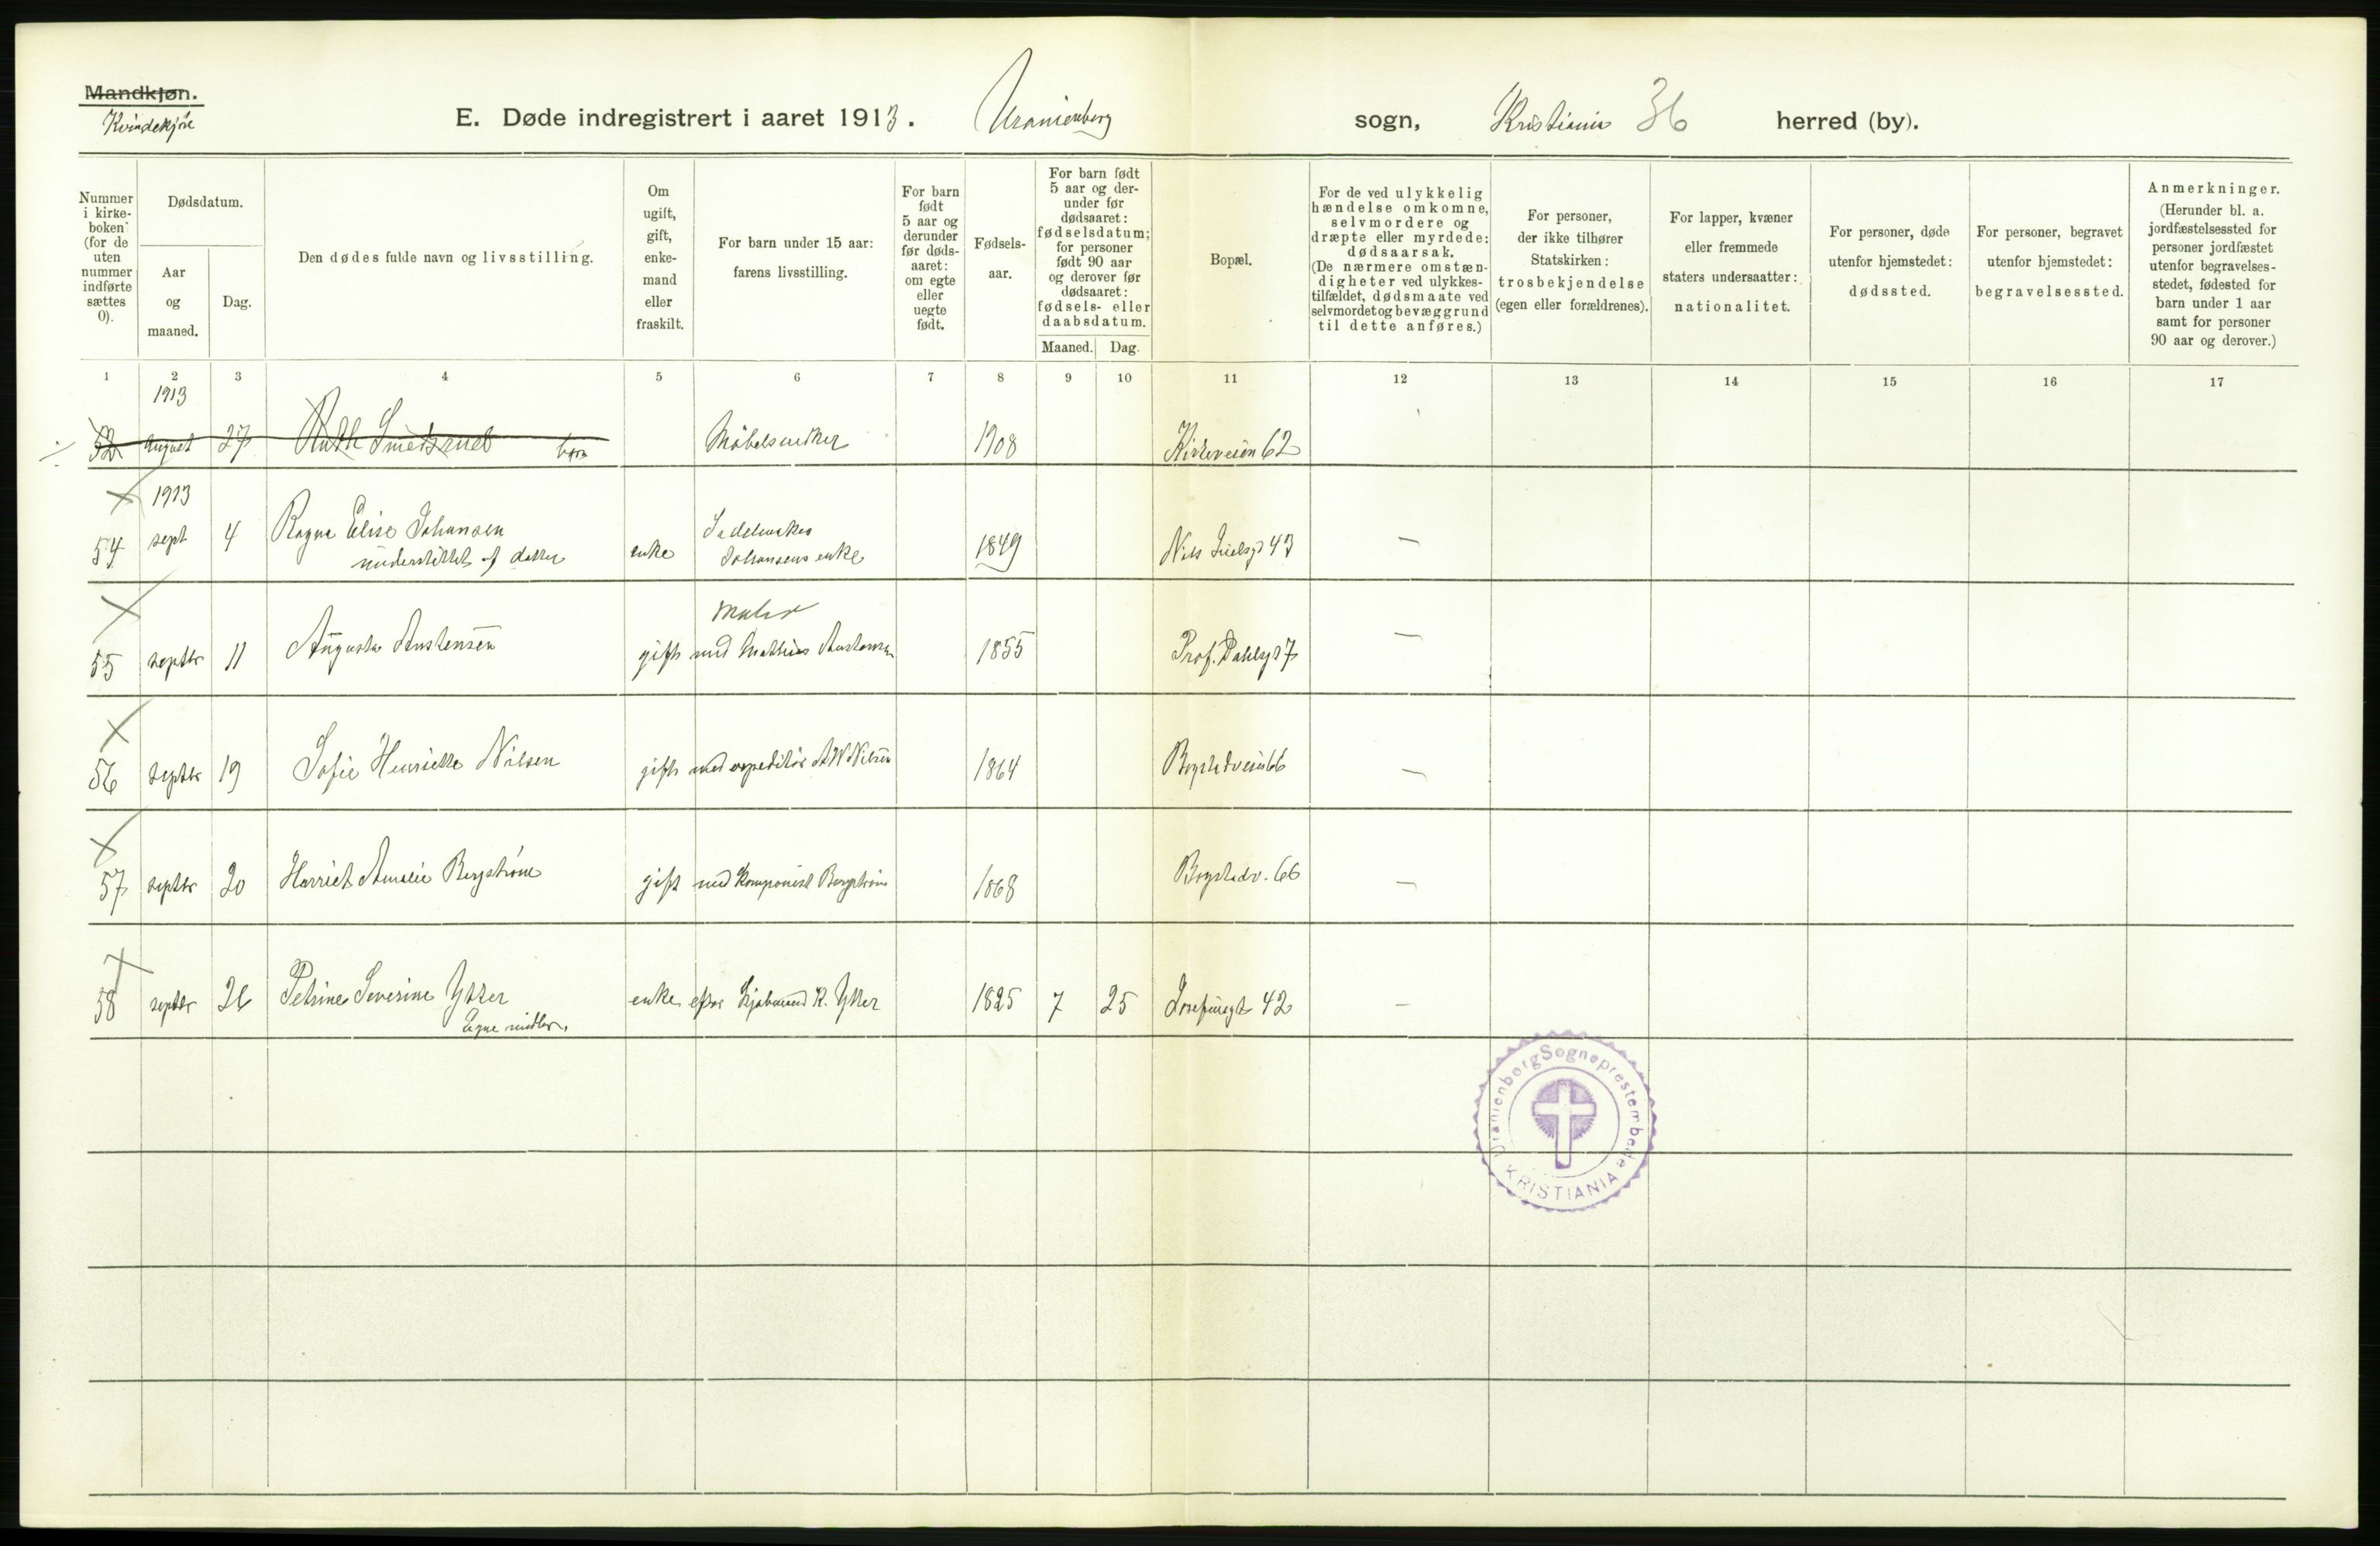 Mandkjøn.
Kvindekjøn
E. Døde indregistrert i aaret 1913. Uranienborg sogn, Kristiania 36 herred (by).
Nummer i kirkeboken (for de uten nummer indførte sættes 0).
Dødsdatum.
Aar og maaned.
Dag.
Den dødes fulde navn og livsstilling.
Om ugift, gift, enkemand eller fraskilt.
For barn under 15 aar: farens livsstilling.
For barn født 5 aar og derunder før dødsaaret: om egte eller uegte født.
Fødselsaar.
For barn født 5 aar og derunder før dødsaaret: fødselsdatum; for personer født 90 aar og derover før dødsaaret: fødsels- eller daabsdatum.
Maaned. Dag.
Bopæl.
For de ved ulykkelig hændelse omkomne, selvmordere og dræpte eller myrdede: dødsaarsak. (De nærmere omstændigheter ved ulykkestilfældet, dødsmaate ved selvmordet og bevæggrund til dette anføres.)
For personer, der ikke tilhører Statskirken: trosbekjendelse (egen eller forældrenes).
For lapper, kvæner eller fremmede staters undersaatter: nationalitet.
For personer, døde utenfor hjemstedet: dødssted.
For personer, begravet utenfor hjemstedet: begravelsessted.
Anmerkninger. (Herunder bl. a. jordfæstelsessted for personer jordfæstet utenfor begravelsesstedet, fødested for barn under 1 aar samt for personer 90 aar og derover.)
1 2 3 4 5 6 7 8 9 10 11 12 13 14 15 16 17
1913
52 August 27 Ruth barn 1908 Kirkeveien 62
1913
54 sept 4 Ragna Elise Johansen enke Sadelmaker 1849 Nils Juelsgt 43 —
understøttet af datter Johansens enke
Maler
55 septbr 11 Augusta Austensen gift med Mathias Austensen 1855 Prof. Dahlsgt 7 —
56 septbr 19 Sofie Henriette Nilsen gift med expeditør A W Nilsen 1864 Bogstadveien 66 —
57 septbr 20 Harriet Amalie Bergstrøm gift med Komponist Bergstrøm 1868 Bogstadv. 66 —
58 septbr 26 Petrine Severine Ytter enke efter R. Ytter 1825 7 25 Josefinegt 42 —
Egne midler.
Uranienborg Sogneprestembede
KRISTIANIA